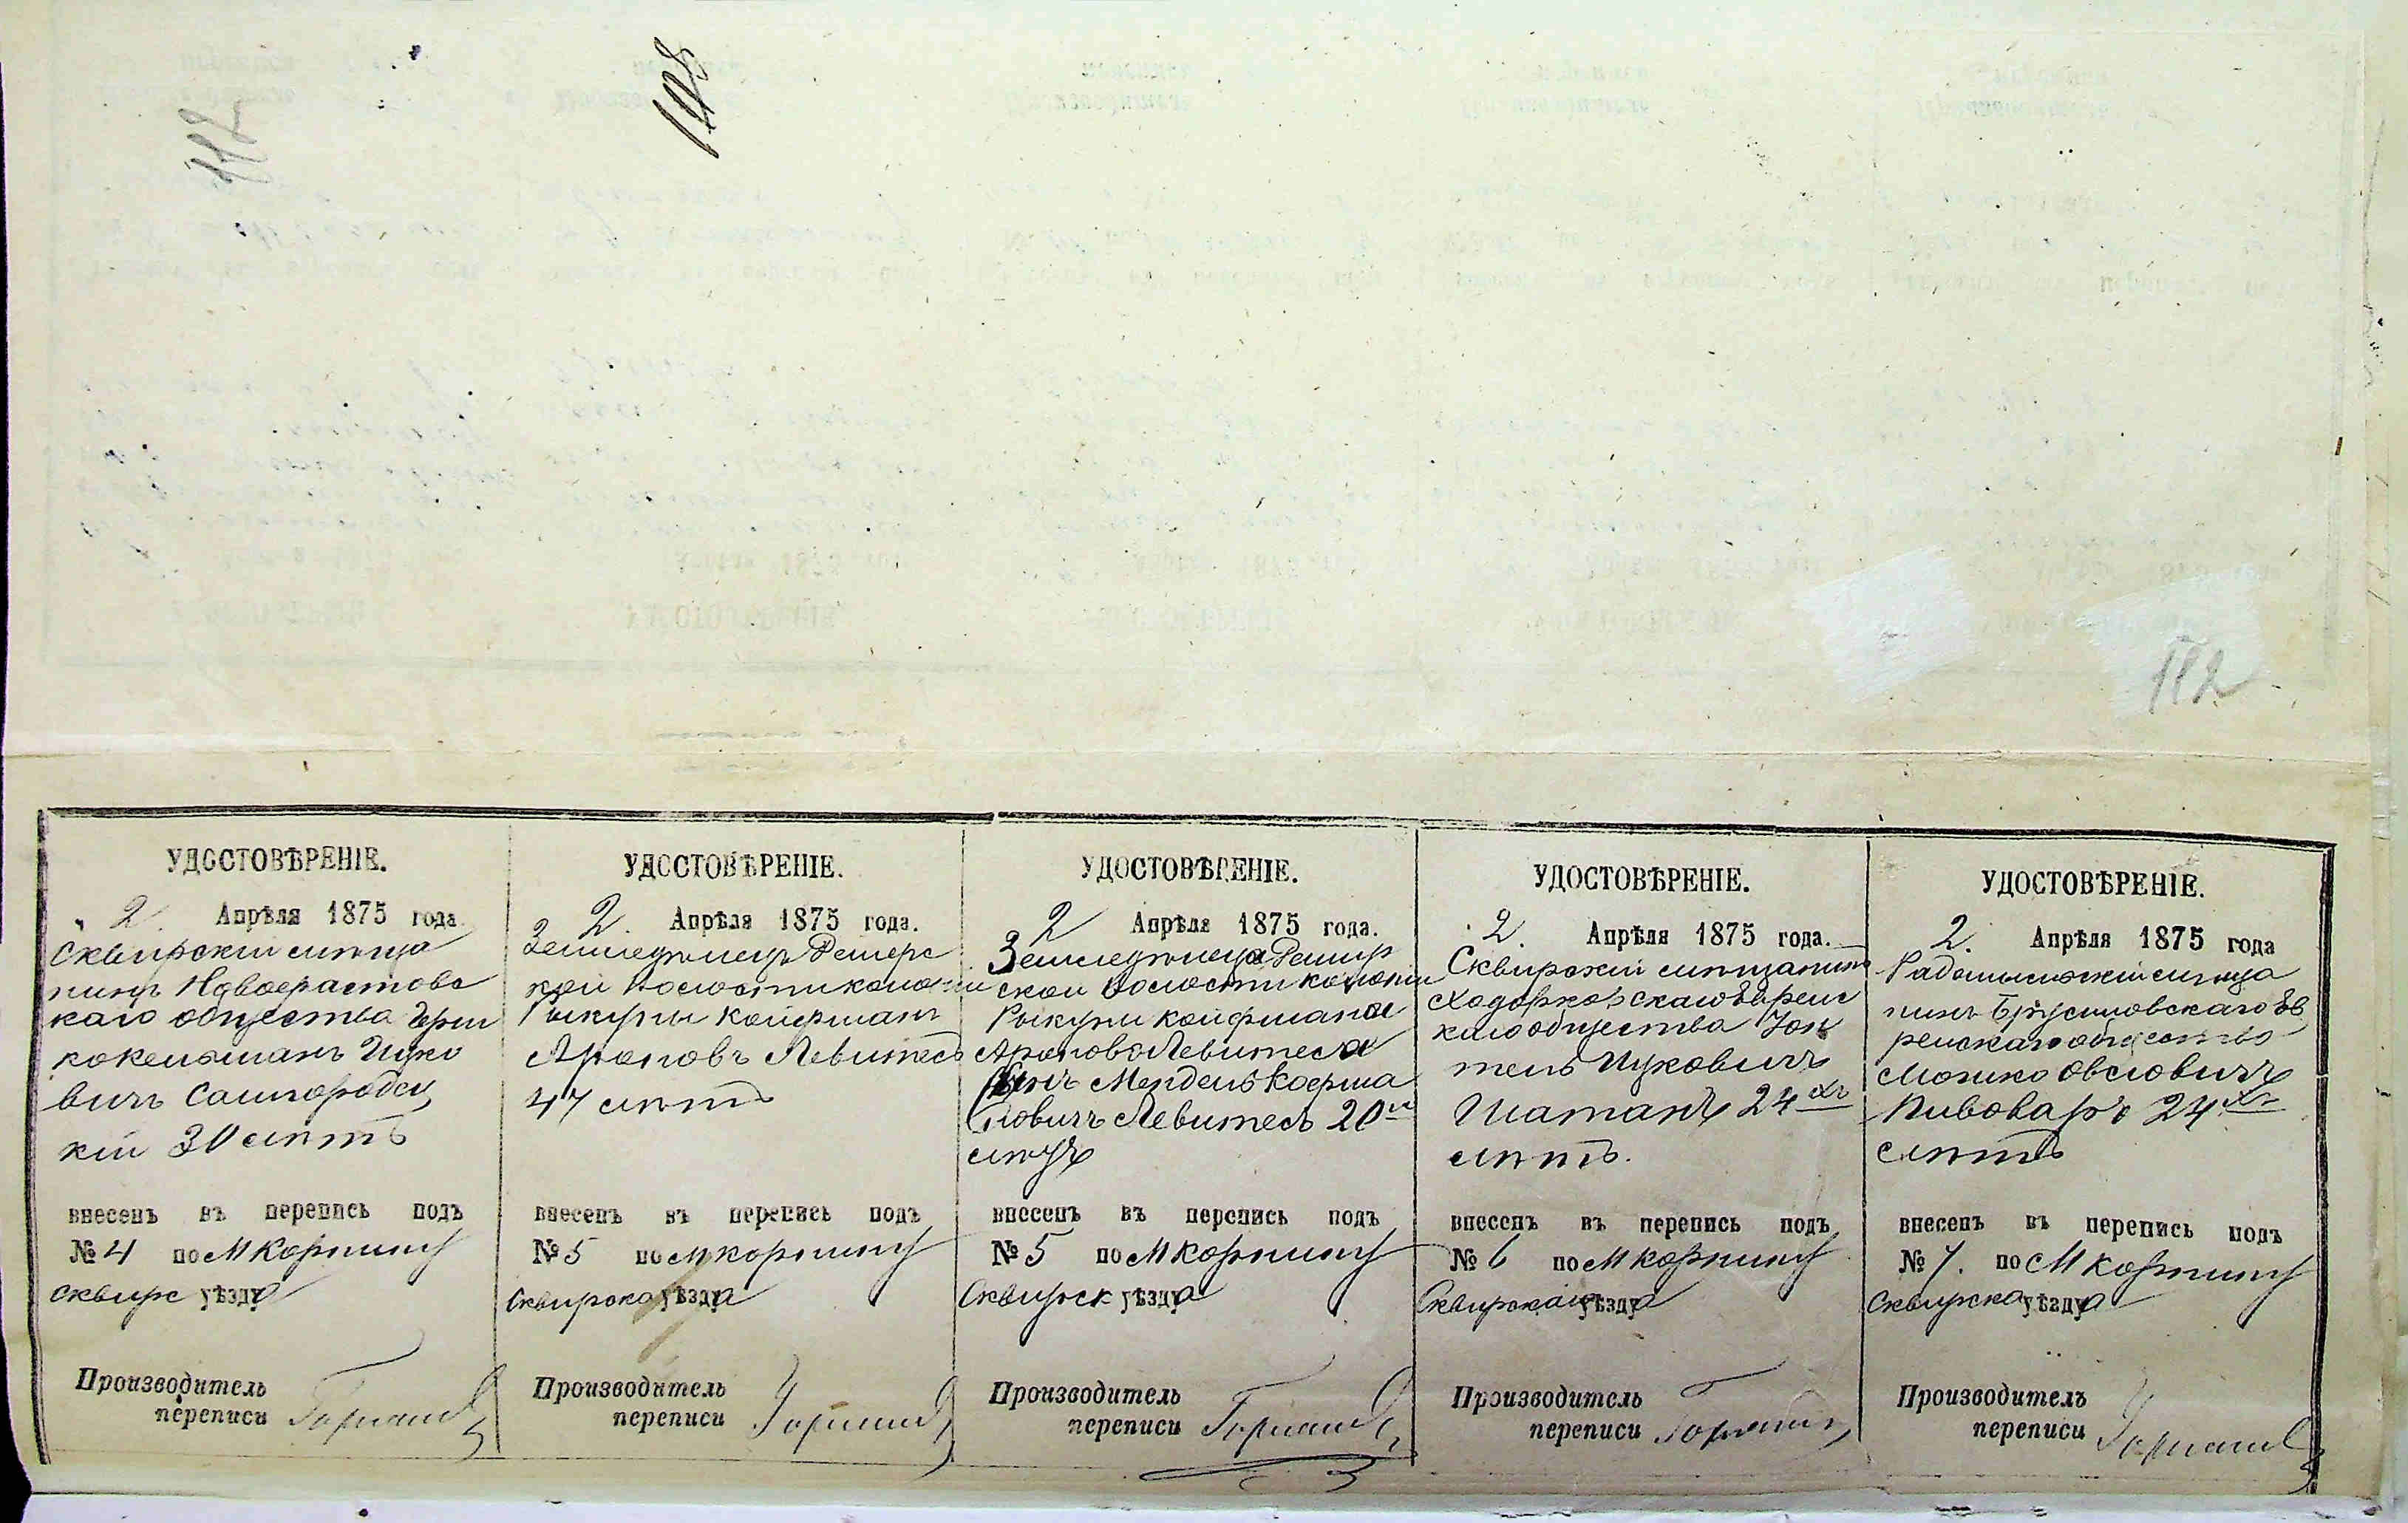 112
УДОСТОВѢРЕНІЕ.
2. Апрѣля 1875 года.
Сквирскій мѣща
нинъ
каго общества Герш
кокельманъ Ицко
вичъ Самгородец
кій 30 лѣтъ
внесенъ въ перепись подъ
№ 4 по М Корнину
Сквирс уѣзда
Производитель
переписи
УДОСТОВѢРЕНІЕ.
2. Апрѣля 1875 года.
Земледѣлецъ
кой Волости колоніи
Рыкуни Койфманъ
Ароновъ Левитесъ
47 лѣтъ
внесенъ въ перепись подъ
№ 5 по М Корнину
Сквирска уѣзда
Производитель
переписи
УДОСТОВѢРЕНІЕ.
2 Апрѣля 1875 года.
Земледѣльца
ской Волости колоніи
Рыкуни Койфмана
Аронова Левитеса
сынъ Мендель Койфма
новичъ Левитесъ 20и
лѣтъ
внесенъ въ перепись подъ
№ 5 по М Корнину
Сквирск уѣзда
Производитель
переписи
УДОСТОВѢРЕНІЕ.
2. Апрѣля 1875 года.
Сквирскій мѣщанинъ
Ходорковскаго Еврейс
каго общества Іон
тель Ицковичъ
Шатанъ 24хъ
лѣтъ.
внесенъ въ перепись подъ
№ 6 по М Корнину
Сквирскаго уѣзда
Производитель
переписи
УДОСТОВѢРЕНІЕ.
2. Апрѣля 1875 года
Радомысльскій мѣща
нинъ Брусиловскаго Ев
рейскаго общества
Мошко Овсіовичъ
Пивоваръ 24хъ
лѣтъ
внесенъ въ перепись подъ
№ 7. по М Корнину
Сквирска уѣзда
Производитель
переписи